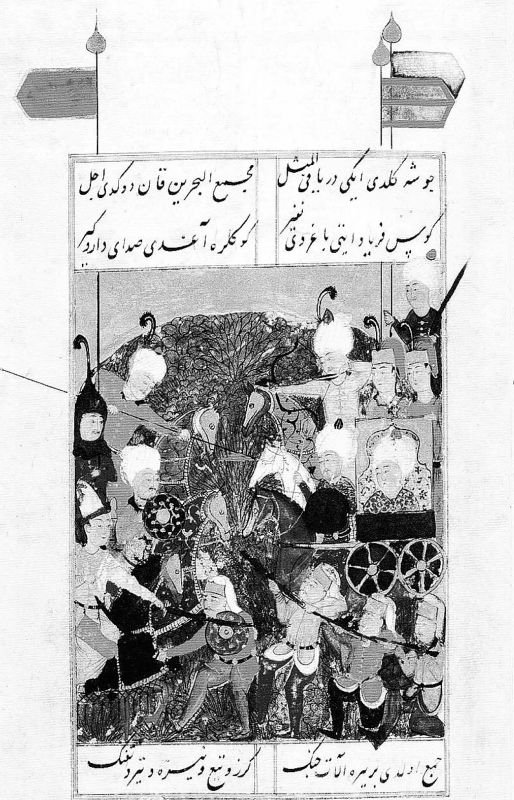 جوشه كلدی ایكی دریا فی المثل مجمع البحرین قان دوكدی اجل
كوس فریاد ایتدی باغردی نفیر كوكلره آغدی صدای دار و كیر
جمع اولدی بر یره آلات جنك كرز و تیغ و نیزه و تیر و تفنك